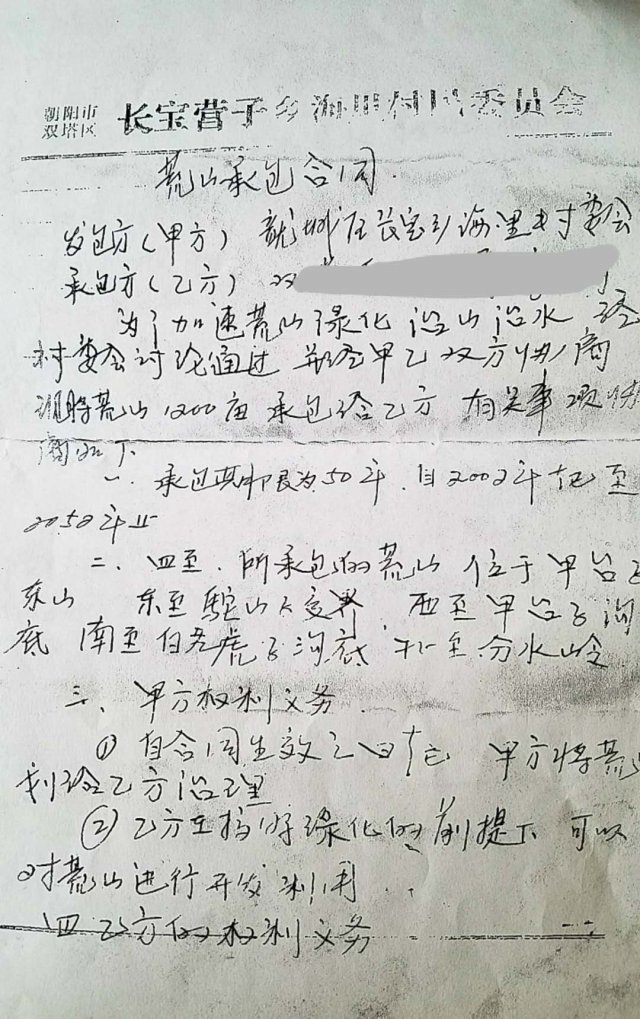 朝阳市
双塔区
长宝营子乡海里村民委员会
荒山承包合同
发包方(甲方) 龙城区长宝乡海里村委会
承包方(乙方) 双
为了加速荒山绿化 治山治水 经
村委会讨论通过 并经甲乙双方协商
现将荒山1200亩 承包给乙方 有关事项协
商如下
一、承包其期限为50年、自2002年起至
2052年止
二、四至、所承包的荒山 位于甲台子
东山 东至 山 交界 西至甲台子沟
底 南至白老虎子沟底 北至分水岭
三、甲方权利义务
① 自合同生效之日起 甲方将荒山
划给乙方治理
② 乙方在搞好绿化的前提下 可以
对荒山进行开发利用
四 乙方的权利义务